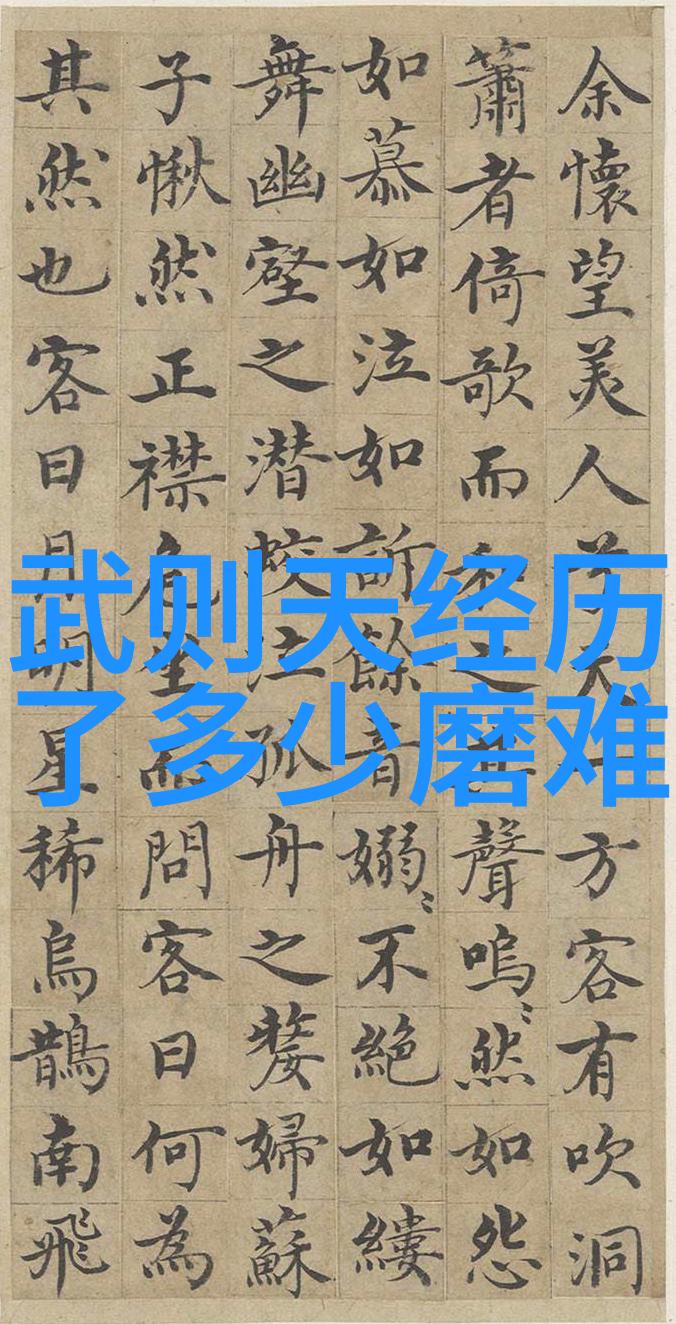 余懷望美人兮天一方客有吹洞
簫者倚歌而和之其聲嗚〻然如怨
如慕如泣如訴餘音嫋〻不絕如縷
舞幽壑之潜蛟泣孤舟之嫠婦蘇
子愀然正襟危坐而問客曰何為
其然也客曰月明星稀烏鵲南飛
武则天经历
了多少磨难